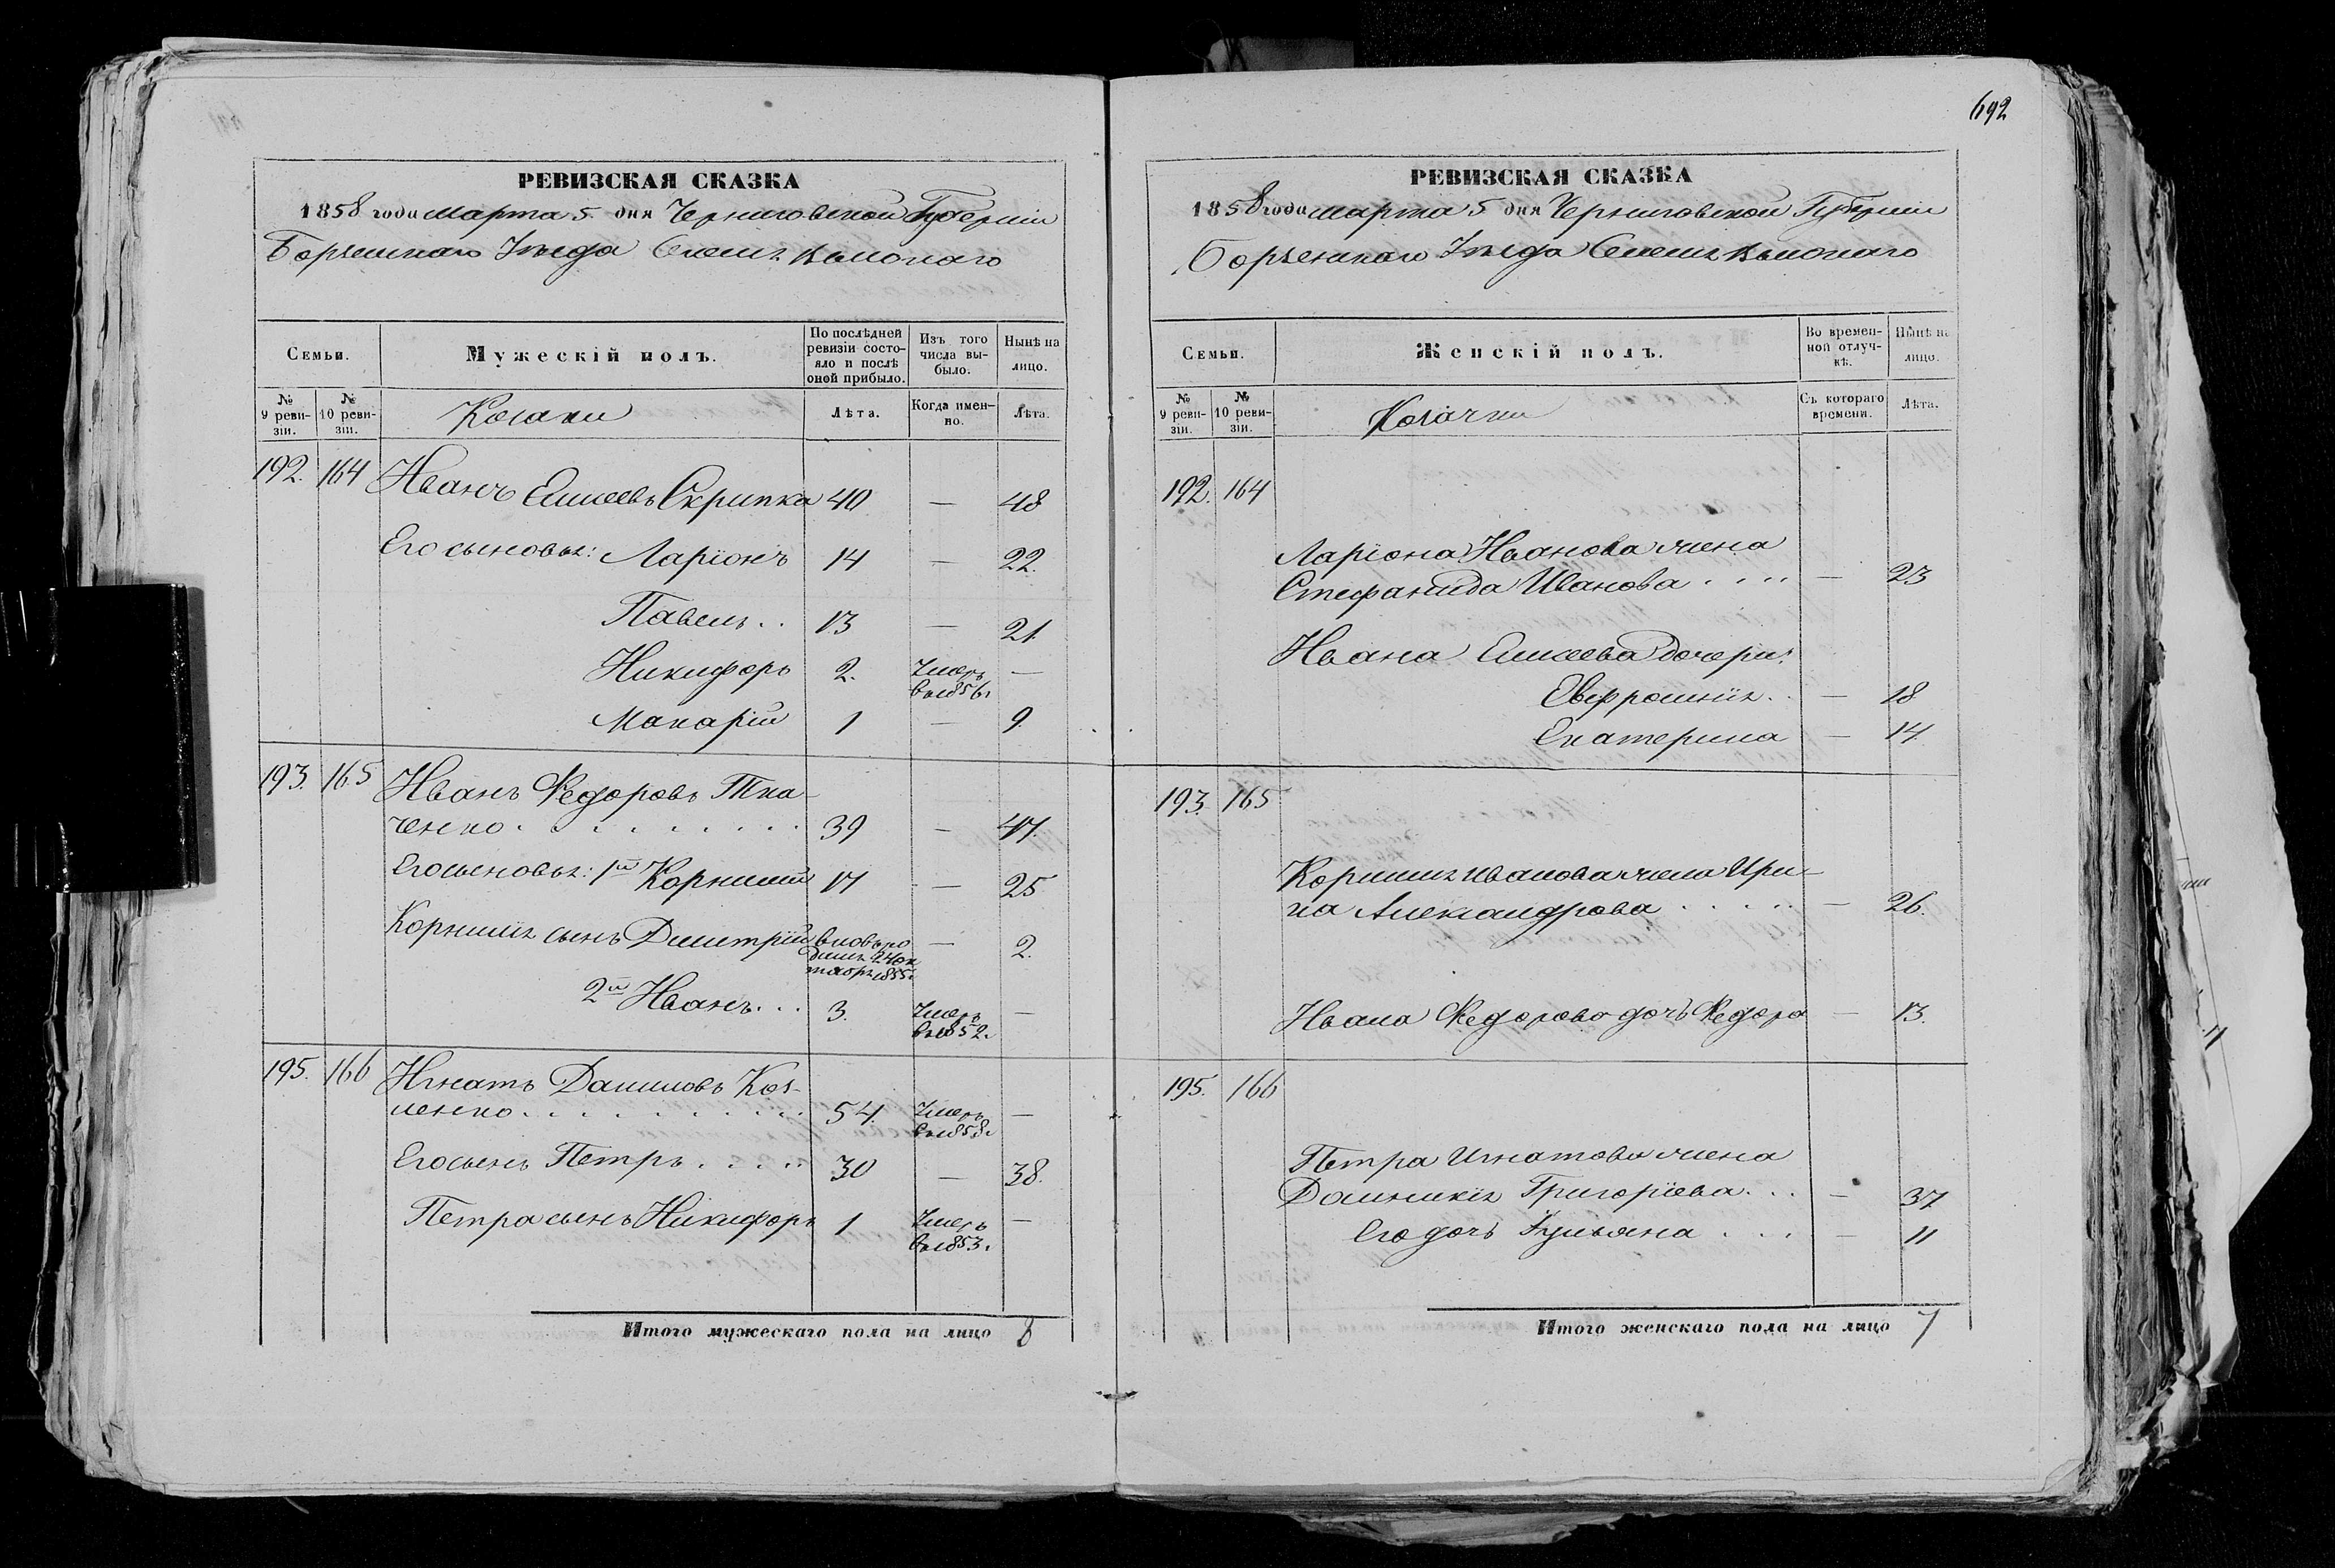 РЕВИЗСКАЯ СКАЗКА
1858 года марта 5 дня Черниговской Губерніи
Борзенскаго Уѣзда
Семьи.
Мужескій полъ.
По послѣдней ревизіи состояло и послѣ оной прибыло.
Изъ того числа выбыло.
Нынѣ на лицо.
№ 9 ревизіи.
№ 10 ревизіи.
Козаки
Лѣта.
Когда именно.
Лѣта.
192. 164 Иванъ Елисеевъ Скрипка 40 — 48
Его сыновья: Ларіонъ 14 — 22.
Павелъ.. 13 — 21.
Никифоръ 2. Умеръ —
въ 1856г
Макарій 1 — 9.
193. 165 Иванъ Федоровъ Тка-
ченко 39 — 47.
Его сыновья: 1й Корнилій 17 — 25
Корнилія сынъ Димитрій вновь ро — 2.
2й Иванъ... 3. Умеръ —
въ 1852.
195. 166 Игнатъ Даниловъ Коз-
ленко 54. Умеръ —
въ 1858.
Его сынъ Петръ 30 — 38.
Петра сынъ Никифоръ 1 Умеръ —
въ 1853.
Итого мужескаго пола на лицо 8
692
РЕВИЗСКАЯ СКАЗКА
1858 года марта 5 дня Черниговской Губерніи
Борзенскаго Уѣзда
Семьи.
Женскій полъ.
Во временной отлучкѣ.
Нынѣ на лицо.
№ 9 ревизіи.
№ 10 ревизіи.
Козачки
Съ котораго времени.
Лѣта.
192. 164
Ларіона Иванова жена
Стефанида Иванова — 23
Ивана Елисеева дочери:
Евфросинія — 18
Екатерина — 14.
193. 165
Корнилія Иванова жена Ири-
на Александрова — 26.
Ивана Федорова дочь Федора — 13.
195. 166
Петра Игнатова жена
Домникія Григоріева... — 37
Его дочь Ульяна — 11
Итого женскаго пола на лицо 7